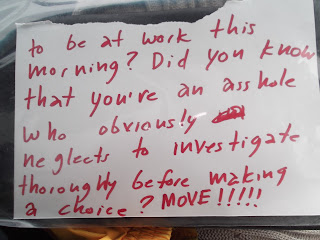 to be at work this
morning? Did you know
that you're an asshole
who obviously
neglects to investigate
thoroughly before making
a choice? MOVE!!!!!